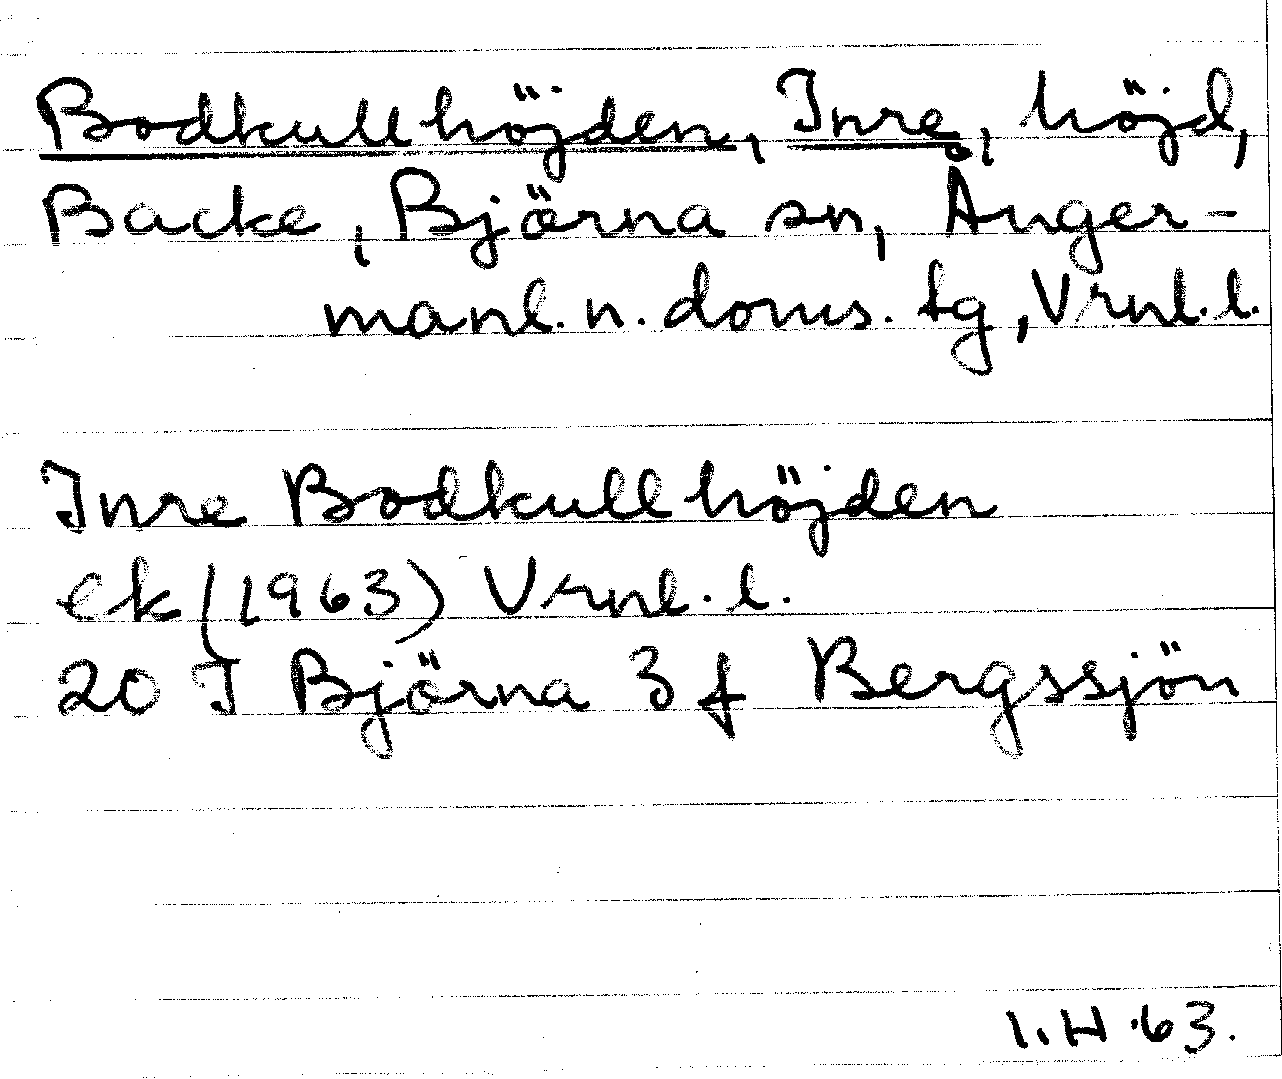 Bodkullhöjden, Inre, höjd,
Backe, Björna sn, Ånger-
manl. n. doms. tg, Vrnl. l.
Inre Bodkullhöjden
ek (1963) Vrnl. l.
20 I Björna 3 f Bergssjön
I. H. 63.